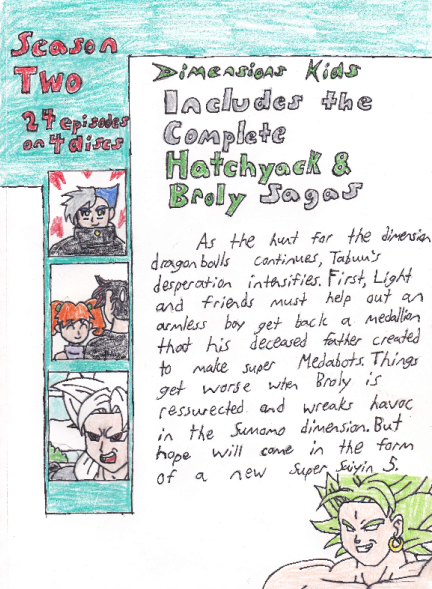 Season
Two
24 episodes
on 4 discs
Dimensions Kids
Includes the
Complete
Hatchyack &
Broly Sagas
As the hunt for the dimension
dragonballs continues, Tabuu's
desperation intensifies. First, Light
and friends must help out an
armless boy get back a medallion
that his deceased father created
to make super Medabots. Things
get worse when Broly is
ressurected and wreaks havoc
in the Sumomo dimension. But
hope will come in the form
of a new Super Saiyin 5.